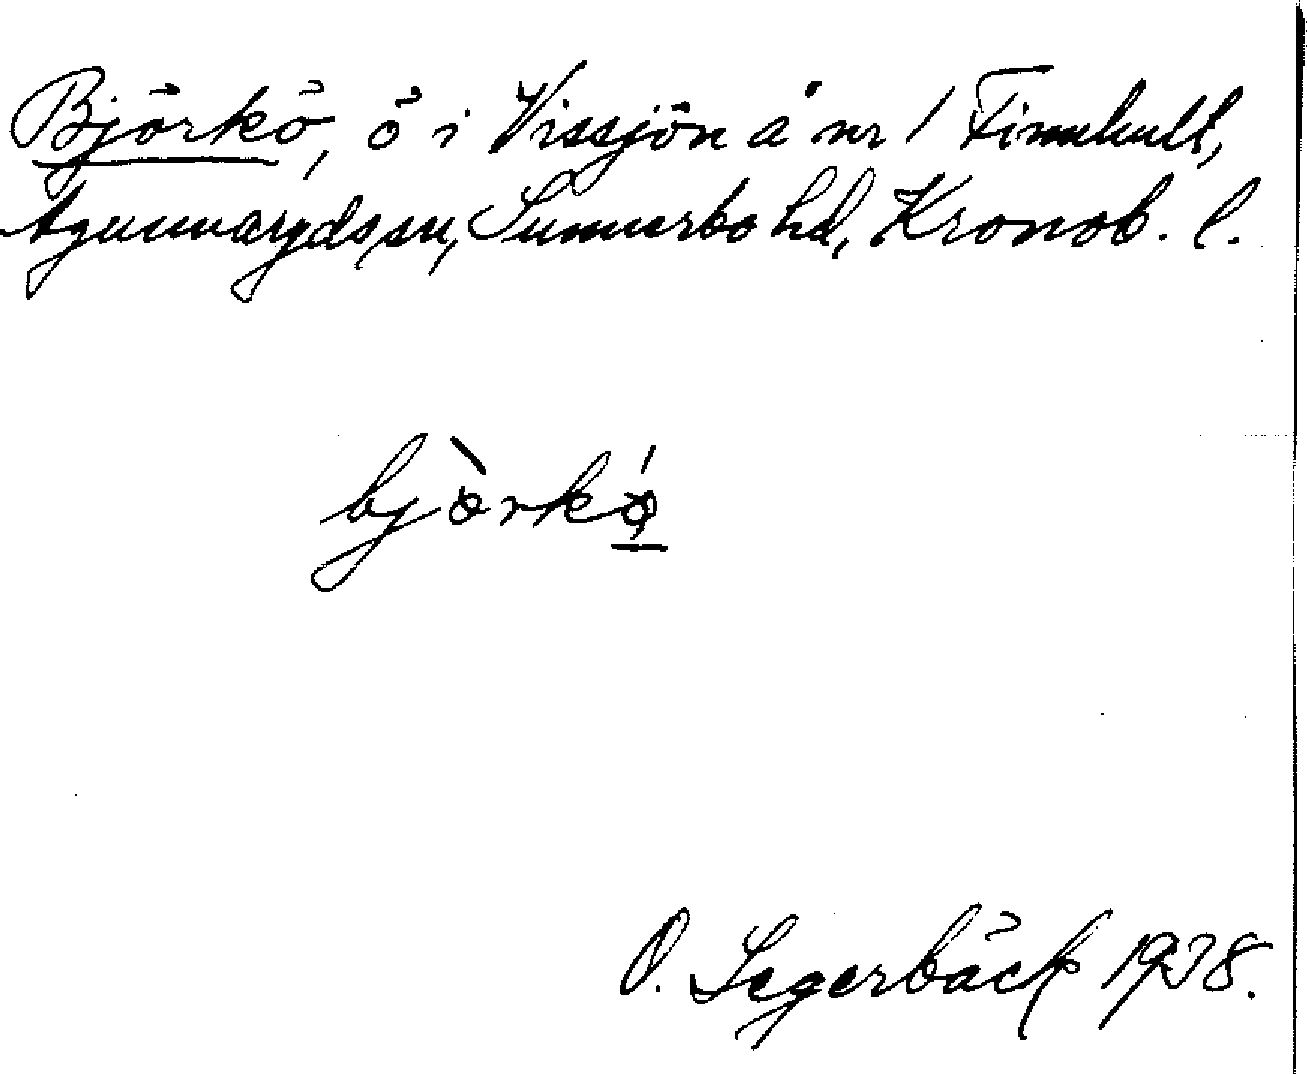 Björkö, ö i Vissjön å nr 1 Finnhult,
Agunnaryds sn, Sunnerbo hd, Kronob. l.
bjòrkó̱
O. Segerbäck 1938.